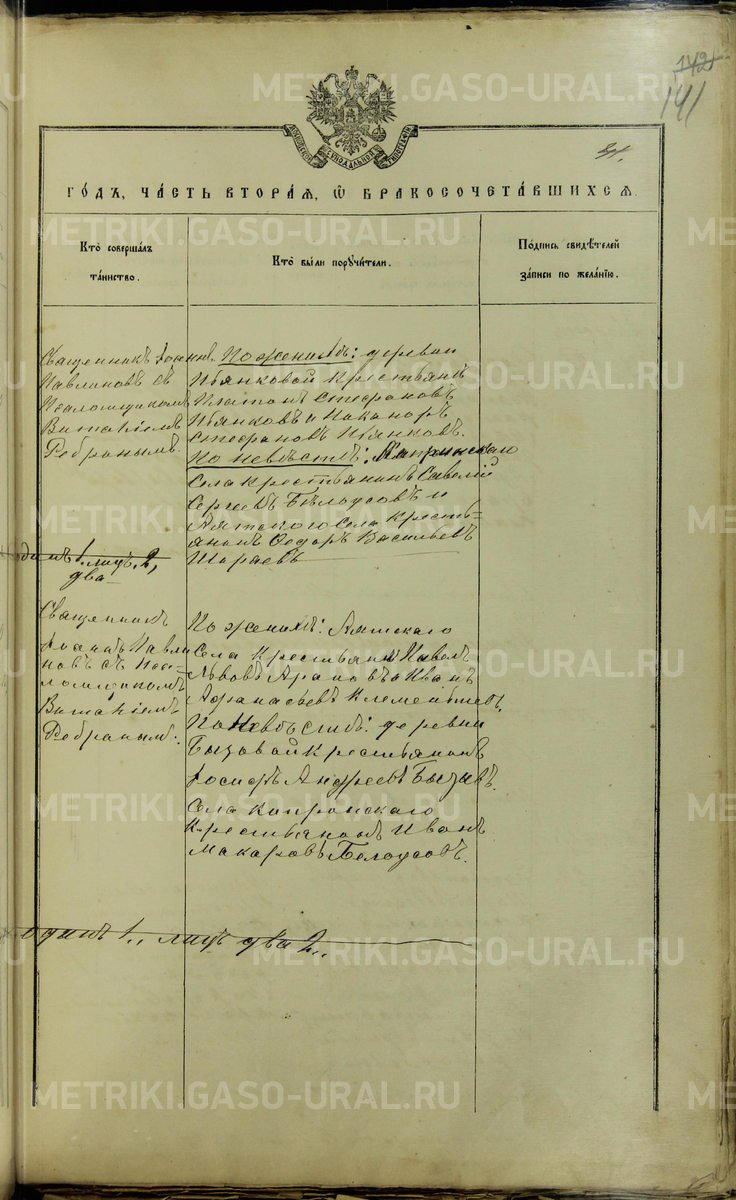 142
141
МОСКОВСКОЙ СѴНОДАЛЬНОЙ ТИПОГРАФІИ
ГО́ДЪ, ЧА́СТЬ ВТОРА́Я, Ѽ БРАКОСОЧЕТА́ВШИХСЯ.
Кто̀ соверша́лъ
та́инство.
Кто̀ бы́ли порꙋчи́тели.
По́дпись свидѣ́телей
за́писи по жела́нїю.
Священникъ Іоаннъ
Павлиновъ съ
Псаломщикомъ
Виталіемъ
Ребринымъ.
По женихѣ: деревни
Пьянковой крестьяне
Платонъ Стефановъ
Пьянковъ и Никаноръ
Стефановъ Пьянковъ.
По невѣстѣ: Липринскаго
Села крестьянинъ Савелій
Сергѣевъ Бѣлоусовъ и
Аятскаго села кресть-
янинъ Ѳедоръ Васильевъ
Шараевъ
одинъ 1. лицъ 2,
два
Священникъ
Іоаннъ Павли
новъ съ Пса-
ломщикомъ
Виталіемъ
Ребринымъ.
По женихѣ: Аятскаго
Села крестьяне Павелъ
Львовъ Араповъ и Иванъ
Афанасьевъ Клементьевъ.
По невѣстѣ: деревни
Бызовой крестьянинъ
Іосифъ Андреевъ Бызовъ.
Села Кипринскаго
Крестьянинъ Иванъ
Макаровъ Белоусовъ.
одинъ 1., лицъ два 2.,
METRIKI.GASO-URAL.RU